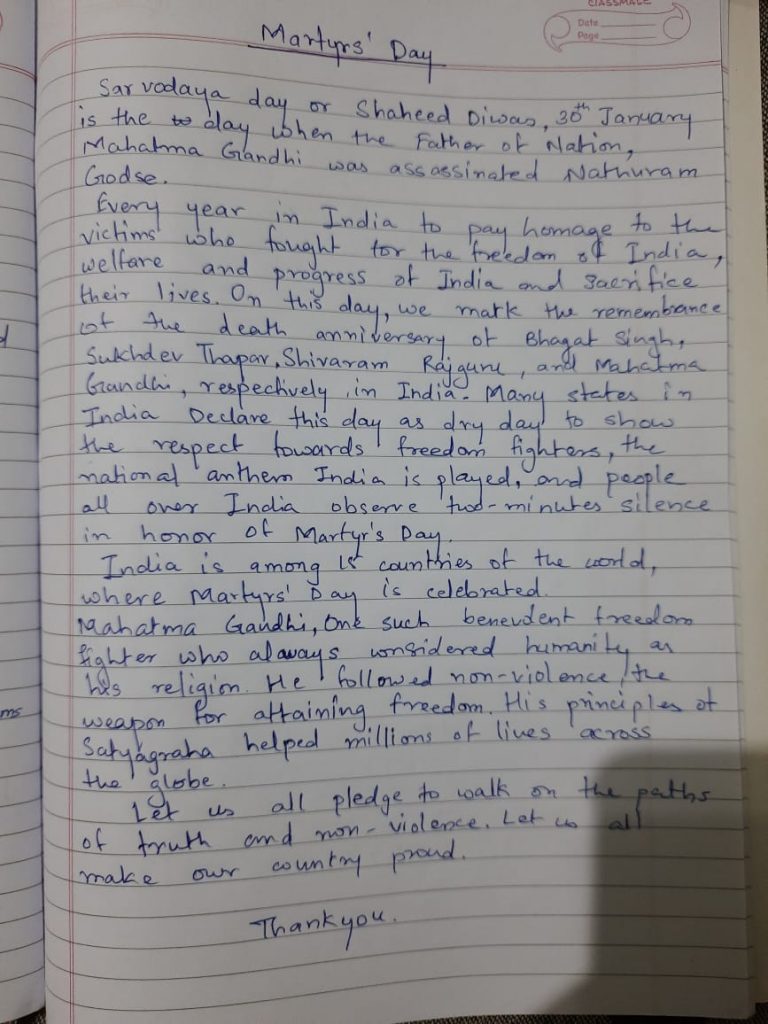 CLASSMATE
Date
Page
Martyrs' Day
Sarvodaya day or Shaheed Diwas, 30th January
is the day when the Father of Nation,
Mahatma Gandhi was assassinated Nathuram
Godse.
Every year in India to pay homage to the
victims who fought for the freedom of India,
welfare and progress of India and sacrifice
their lives. On this day, we mark the remembrance
of the death anniversary of Bhagat Singh,
Sukhdev Thapar, Shivaram Rajguru, and Mahatma
Gandhi, respectively, in India. Many states in
India Declare this day as dry day to show
the respect towards freedom fighters, the
national anthem India is played, and people
all over India observe two-minutes silence
in honor of Martyr's Day.
India is among 15 countries of the world,
where Martyrs' Day is celebrated.
Mahatma Gandhi, One such benevolent freedom
fighter who always considered humanity as
his religion. He followed non-violence, the
weapon for attaining freedom. His principles of
Satyagraha helped millions of lives across
the globe.
Let us all pledge to walk on the paths
of truth and non-violence. Let us all
make our country proud.
Thankyou.
ms